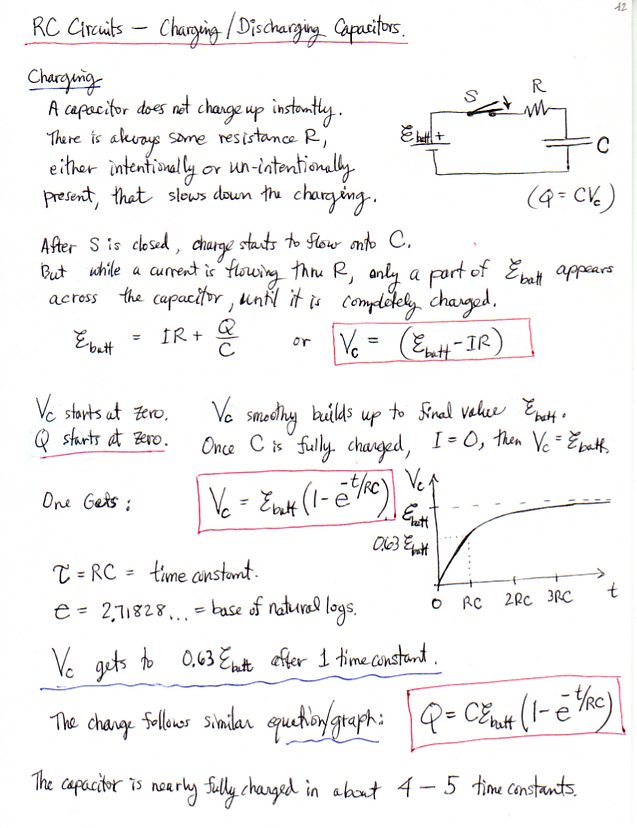 12
RC Circuits — Charging/Discharging Capacitors.
Charging
A capacitor does not charge up instantly.
There is always some resistance R,
either intentionally or un-intentionally
present, that slows down the charging.
S
R
ℰbatt +
C
(Q = CVc)
After S is closed, charge starts to flow onto C.
But while a current is flowing thru R, only a part of ℰbatt appears
across the capacitor, until it is completely charged.
ℰbatt = IR + Q/C or Vc = (ℰbatt - IR)
Vc starts at zero. Vc smoothy builds up to final value ℰbatt.
Q starts at zero. Once C is fully charged, I = 0, then Vc = ℰbatt.
One Gets: Vc = ℰbatt (1 - e^-t/RC)
Vc
ℰbatt
0.63 ℰbatt
0 RC 2RC 3RC t
τ = RC = time constant.
e = 2.71828... = base of natural logs.
Vc gets to 0.63 ℰbatt after 1 time constant.
The charge follows similar equation/graph: Q = Cℰbatt (1 - e^-t/RC)
The capacitor is nearly fully charged in about 4 - 5 time constants.